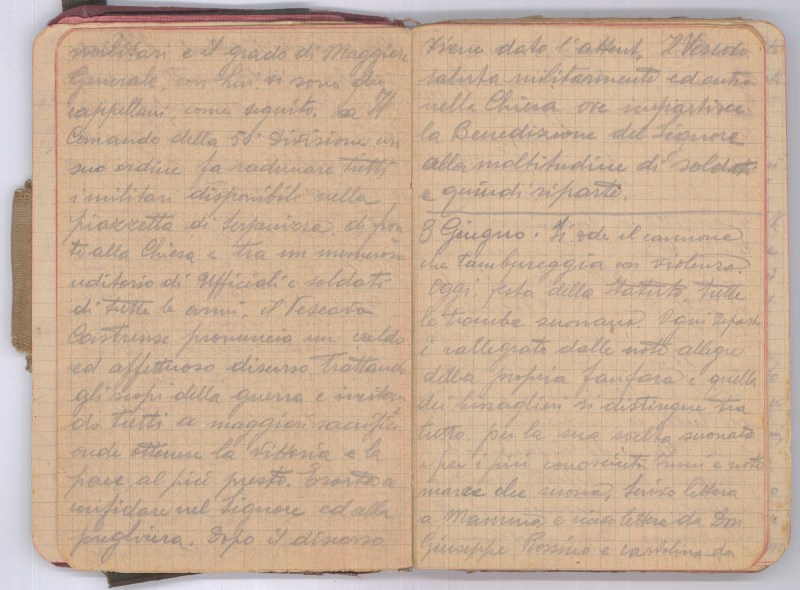 militari e il grado di Maggiore
Generale, con Lui vi sono due
cappellani, come seguito. Il
Comando della 58ª Divisione con
suo ordine fa radunare tutti
i militari disponibili nella
piazzetta di di fron
te alla Chiesa e tra un numeroso
uditorio di Ufficiali e soldati
di tutte le armi, il Vescovo
Castrense pronuncia un caldo
ed affettuoso discorso trattando
gli scopi della guerra e invitan
do tutti a maggiori sacrifici
onde ottenere la Vittoria e la
pace al più presto. Esorta a
confidare nel Signore ed alla
preghiera. Dopo il discorso
viene dato l'attent. Il Vescovo
saluta militarmente ed entra
nella Chiesa ove impartisce
la Benedizione del Signore
alla moltitudine di soldati
e quindi riparte.
3 Giugno. Si ode il cannone
che tambureggia con violenza.
Oggi, festa dello Statuto, tutte
le trombe suonano. Ogni Repart
è rallegrato dalle note allegre
della propria fanfara e quella
dei bersaglieri si distingue tra
tutte per la sua scelta suonata
e per i più conosciuti inni e note
marce che suona. Scrivo lettera
a Mamma e ricevo lettera da Don
Giuseppe Rossino e cartolina da